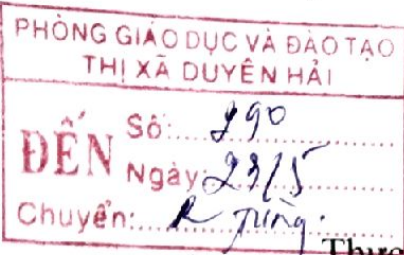 PHÒNG GIÁO DỤC VÀ ĐÀO TẠO
THỊ XÃ DUYÊN HẢI
ĐẾN
Số:
Ngày: 23/5
Chuyển: